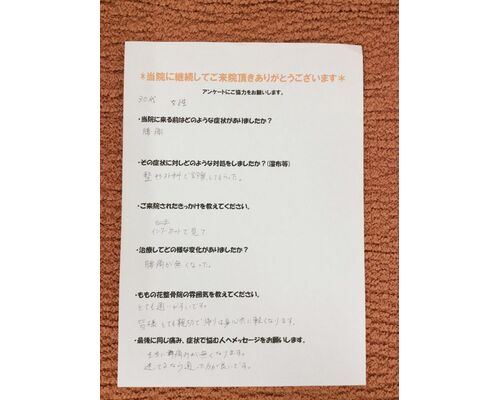 *当院に継続してご来院頂きありがとうございます*
アンケートにご協力をお願いします。
30代 女性
・当院に来る前はどのような症状がありましたか？
腰痛
・その症状に対しどのような対処をしましたか？(湿布等)
・ご来院されたきっかけを教えてください。
インターネットで見て
・治療してどの様な変化がありましたか？
腰痛が無くなった。
・ももの花整骨院の雰囲気を教えてください。
とても通いやすいです。
皆様とても親切で帰りは身心共に軽くなります。
・最後に同じ痛み、症状で悩む人へメッセージをお願いします。
本当に痛みが無くなります。
迷ってるなら通った方が良いです。